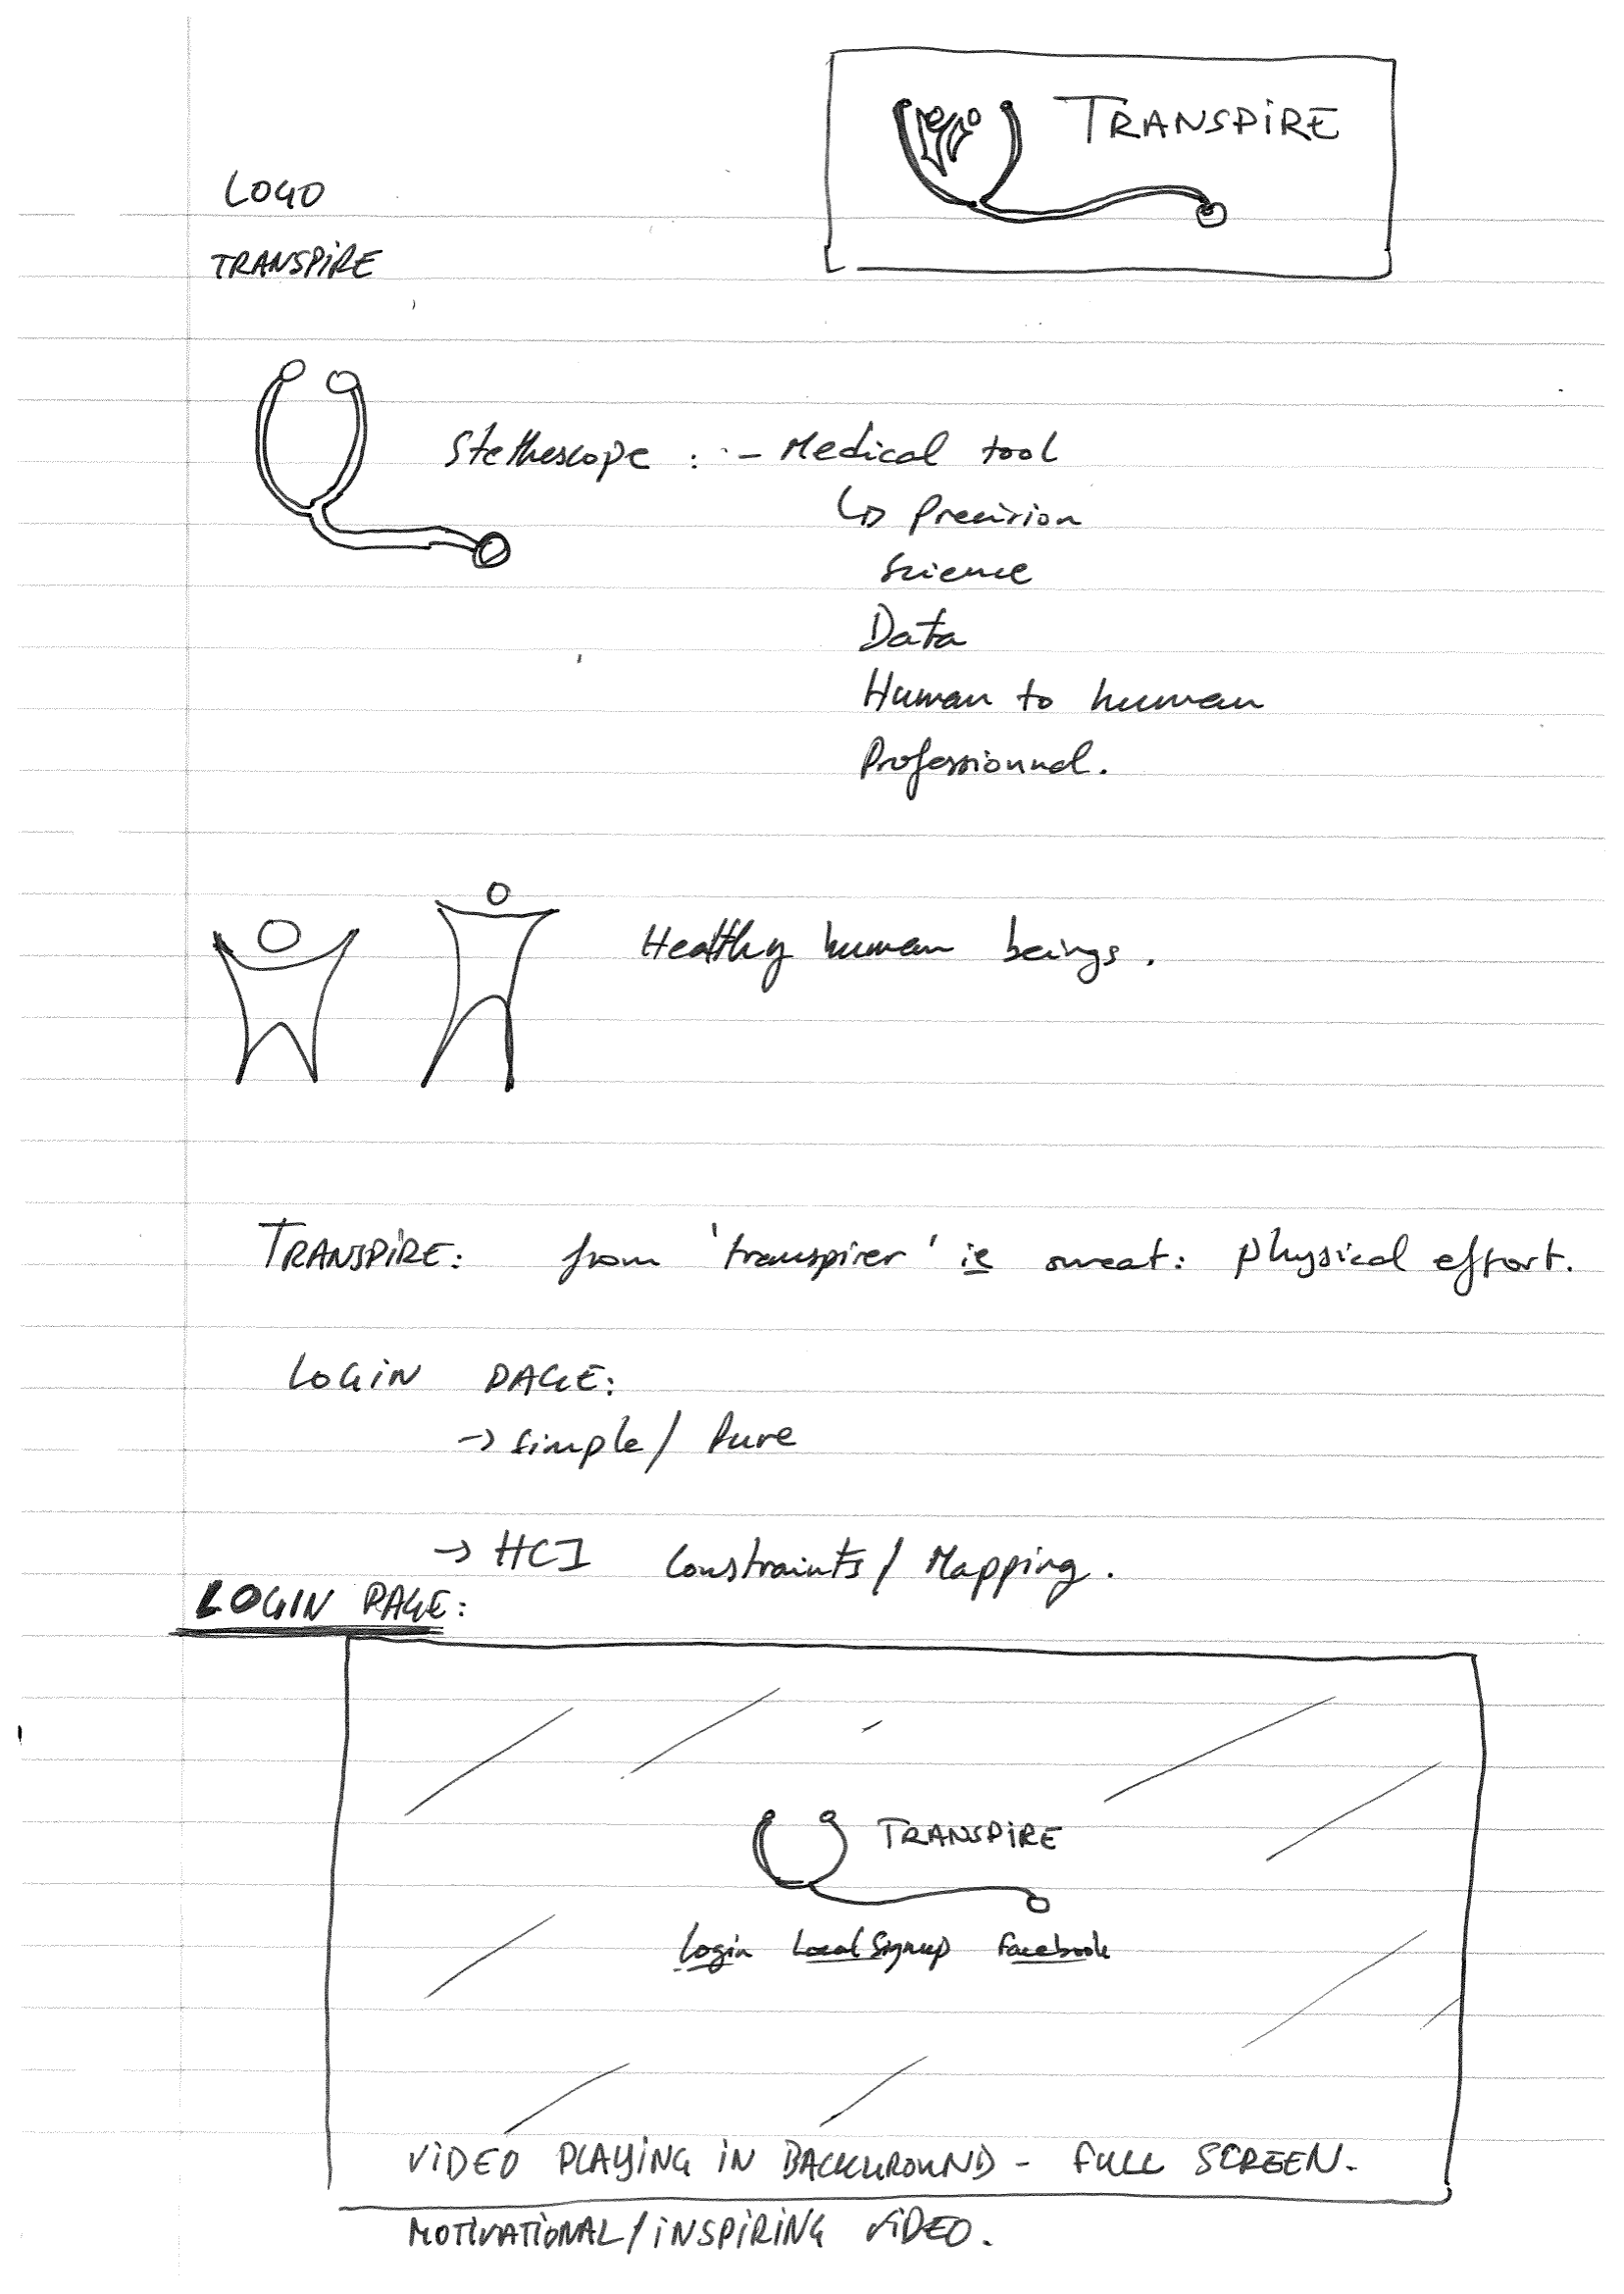 TRANSPIRE
LOGO
TRANSPIRE
Stethescope : - Medical tool
↳ Precision
Science
Data
Human to human
Professionnal.
Healthy human beings.
TRANSPIRE: from 'transpirer' ie sweat: physical effort.
LOGIN PAGE:
→ simple / Pure
→ HCI Constraints / Mapping.
LOGIN PAGE:
TRANSPIRE
Login Local Signup Facebook
VIDEO PLAYING IN BACKGROUND - FULL SCREEN.
MOTIVATIONAL / INSPIRING VIDEO.